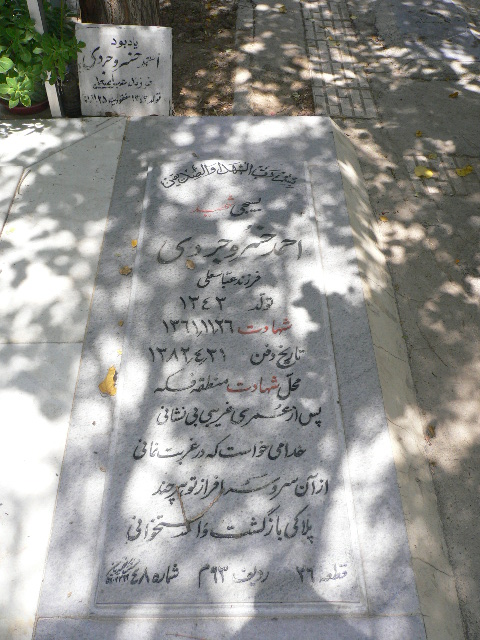 یادبود
احمد خسروجردی
تولد ۱۳۴۳
بسیجی شهید
احمد خسروجردی
فرزند عباسعلی
تولد ۱۳۴۳
شهادت ۱۳۶۱,۱۱,۲۶
تاریخ دفن ۱۳۸۲,۴,۳۱
محل شهادت منطقه فکه
پس از عمری غریبی بی نشانی
خدا می خواست که در غربت نمانی
از آن سرو سرافراز تو هر چند
پلاکی بازگشت و استخوانی
قطعه ۲۶ ردیف ۹۳م شماره ۴۸